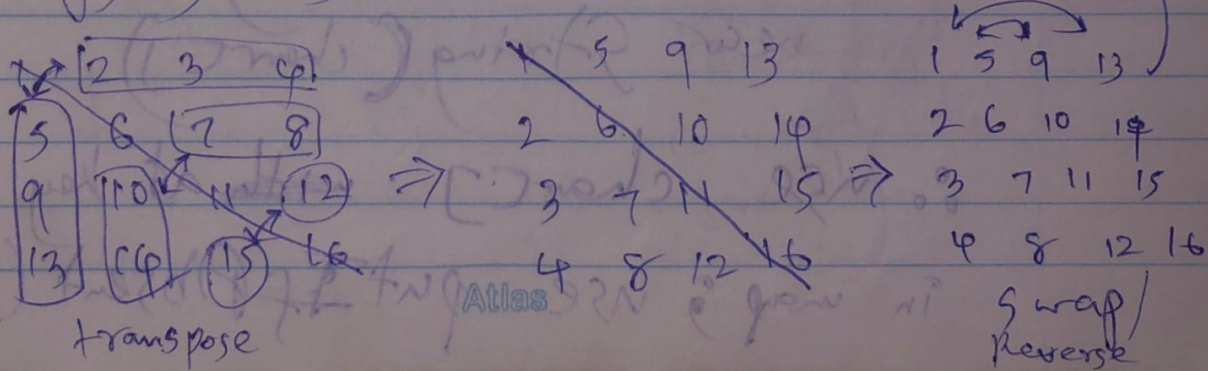 1 2 3 4
5 6 7 8
9 10 11 12
13 14 15 16
transpose
⇒
1 5 9 13
2 6 10 14
3 7 11 15
4 8 12 16
⇒
1 5 9 13
2 6 10 14
3 7 11 15
4 8 12 16
Swap/
Reverse
Atlas